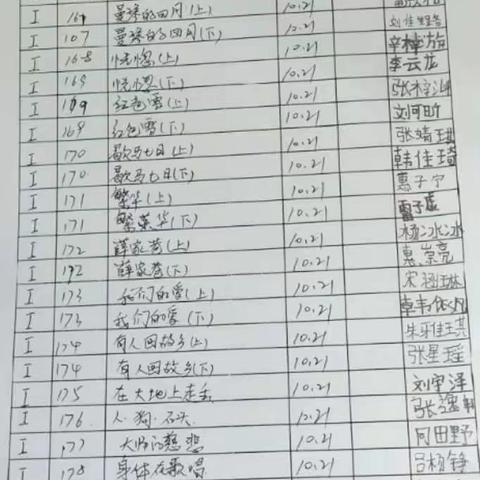 I 167 曼琴的四月(上) 10.21
I 107 曼琴的四月(下) 10.21 刘佳
I 168 恍惚(上) 10.21 辛梓旃
I 168 恍惚(下) 10.21 李云龙
I 169 红色雪(上) 10.21 张梓
I 169 红色雪(下) 10.21 刘河昕
I 170 歇马七日(上) 10.21 张靖琪
I 170 歇马七日(下) 10.21 韩佳琦
I 171 繁华(上) 10.21 惠子宁
I 171 繁华(下) 10.21 雷子
I 172 薛家巷(上) 10.21 杨冰冰
I 172 薛家巷(下) 10.21 惠崇亮
I 173 我们的爱(上) 10.21 宋
I 173 我们的爱(下) 10.21
I 174 有人回故乡(上) 10.21 朱雅琪
I 174 有人回故乡(下) 10.21 张星瑶
I 175 在大地上走丢 10.21 刘宇泽
I 176 人·狗·石头 10.21 张
I 177 大师的慈悲 10.21 同田野
I 178 身体在歌唱 10.21 吕杨铮